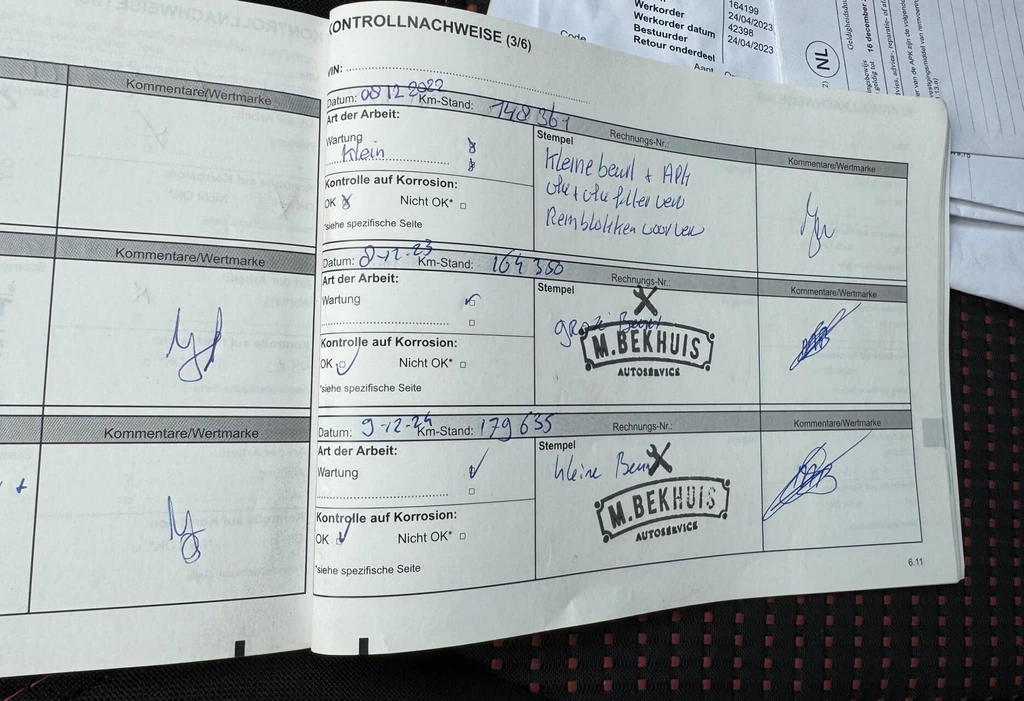 Kommentare/Wertmarke
Kommentare/Wertmarke
Kommentare/Wertmarke
KONTROLLNACHWEISE (3/6)
VIN:
Datum: 08 12 2022 Km-Stand: 148 361 Rechnungs-Nr.:
Art der Arbeit:
Wartung
Klein
Kontrolle auf Korrosion:
OK Nicht OK*
*siehe spezifische Seite
Stempel
Kleine beurt + APK
olie + oliefilter verv
Remblokken voor verv
Kommentare/Wertmarke
Datum: 8-12-23 Km-Stand: 164 350 Rechnungs-Nr.:
Art der Arbeit:
Wartung
Kontrolle auf Korrosion:
OK Nicht OK*
*siehe spezifische Seite
Stempel
M.BEKHUIS
AUTOSERVICE
Kommentare/Wertmarke
Datum: 9-12-24 Km-Stand: 179 635 Rechnungs-Nr.:
Art der Arbeit:
Wartung
Kontrolle auf Korrosion:
OK Nicht OK*
*siehe spezifische Seite
Stempel
kleine
M.BEKHUIS
AUTOSERVICE
Kommentare/Wertmarke
6.11
Code
164199
Werkorder 24/04/2023
Werkorder datum 42398
Bestuurder 24/04/2023
Retour onderdeel
NL